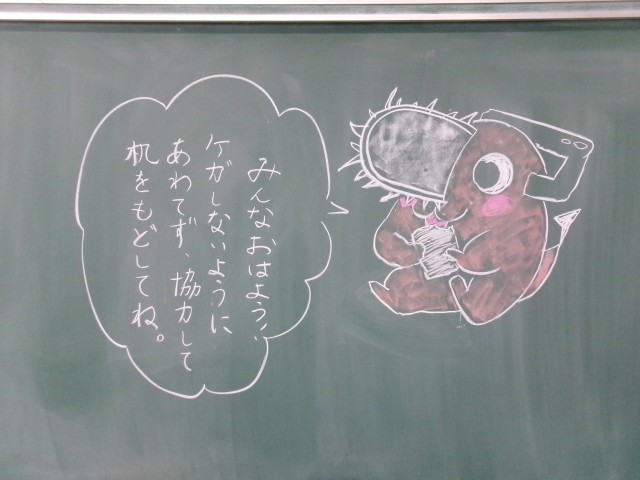 みんなおはよう!
ケガしないように
あわてず、協力して
机をもどしてね。